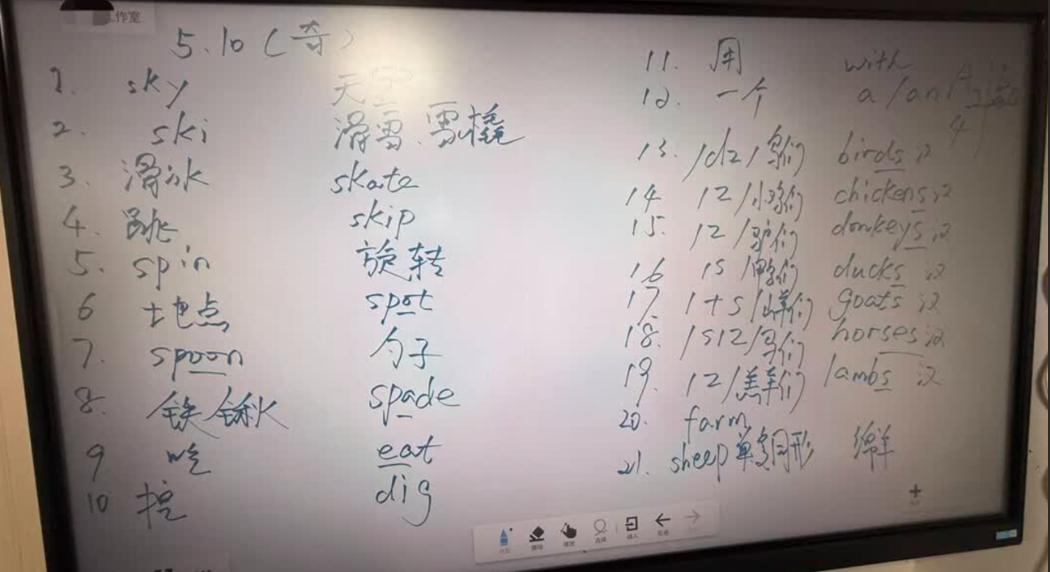 工作室
5.10（奇）
1. sky 天空
2. ski 滑雪、雪橇
3. 滑冰 skate
4. 跳 skip
5. spin 旋转
6 地点 spot
7. spoon 勺子
8. 铁锹 spade
9 吃 eat
10 挖 dig
11. 用 with
12. 一个 a/an
13. /dz/鸟们 birds 汉
14 /z/小鸡们 chickens 汉
15. /z/驴们 donkeys 汉
16 /s/鸭们 ducks 汉
17. /ts/山羊们 goats 汉
18. /siz/马们 horses 汉
19. /z/羔羊们 lambs 汉
20. farm
21. sheep 单复同形 绵羊